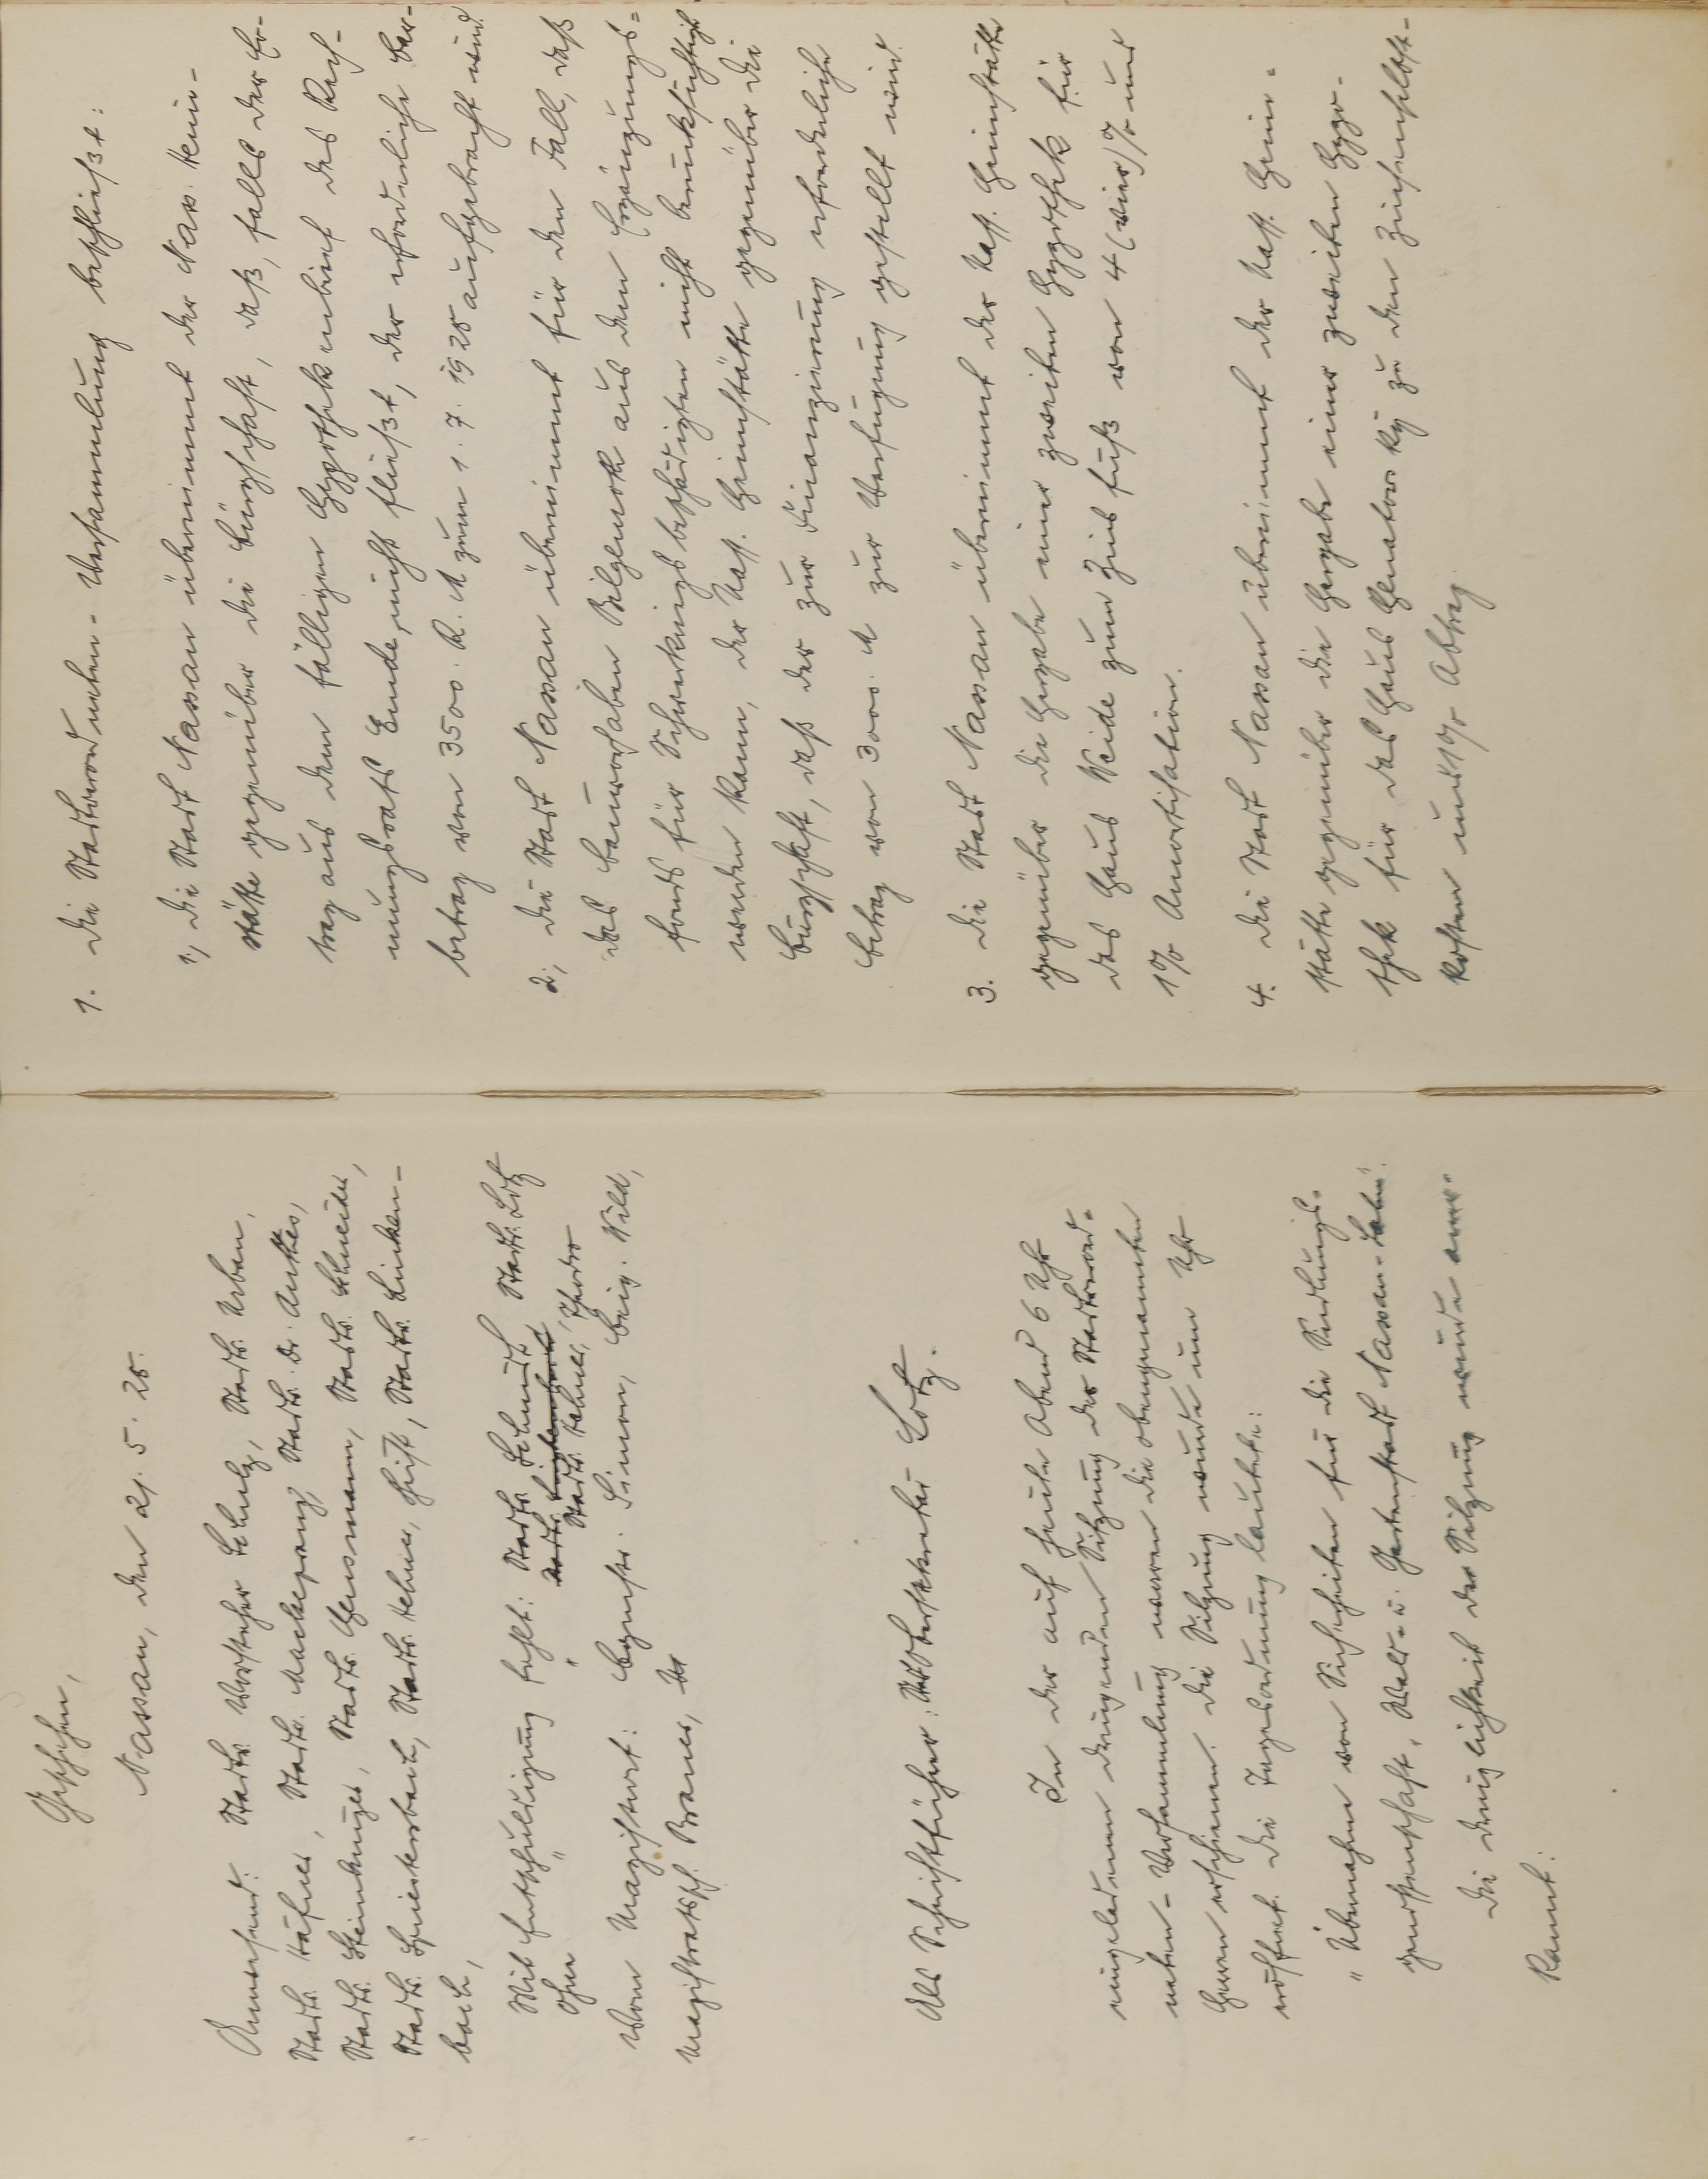 Geschehen,
Nassau, den 21. 5. 28.
Anwesend: Stadtv. Vorsteher Schulz, Stadtv. Urban,
Stadtv. Häfner, Stadtv. Mackeprang, Stadtv. Dr. Anthes,
Stadtv. Steinhäuser, Stadtv. Heusmann, Stadtv. Schneider,
Stadtv. Spiesterbach, Stadtv. Lehner, Stadtv. Linken-
bach,
Mit Entschuldigung fehlt: Stadtv. Schmidt, Stadtv. Lotz
Ohne " " Stadtv. Lehner,
Vom Magistrat: Bürgmstr. Simon, Beig. Wild,
Magistratssch. Braner,
Als Schriftführer: Stadtsekretär Lotz.
In der auf heute Abend 6 Uhr
eingeladenen dringenden Sitzung der Stadtverord-
neten-Versammlung waren die obengenannten
Herren erschienen. Die Sitzung wurde um Uhr
eröffnet. Die Tagesordnung lautete:
"Übernahme von Sicherheiten für die Siedlungs-
genossenschaft, Wald- u. Gartenstadt Nassau-Lahn".
Die Dringlichkeit der Sitzung wurde aner-
kannt.
1. Die Stadtverordneten-Versammlung beschließt:
1., Die Stadt Nassau übernimmt der Nass. Heim-
stätte gegenüber die Bürgschaft, daß, falls der Er-
trag aus dem fälligen Hypothekenbrief des Rech-
nungsrats Ende nicht fließt, der erforderliche Bar-
betrag von 3500. R. M zum 1. 7. 1928 aufgebracht wird
2., Die Stadt Nassau übernimmt für den Fall, daß
das Bauvorhaben Bilgenroth aus dem Ergänzungs-
fonds für Schwerkriegsbeschädigten nicht berücksichtigt
werden kann, der Nass. Heimstätte gegenüber die
Bürgschaft, daß der zur Finanzierung erforderliche
Betrag von 3000. M zur Verfügung gestellt wird.
3. Die Stadt Nassau übernimmt der Nass. Heimstätte
gegenüber die Hergabe einer zweiten Hypothek für
das Haus Weide zum Zinsfuß von 4 (vier) % und
1% Amortisation.
4. Die Stadt Nassau übernimmt der Nass. Heim-
stätte gegenüber die Hergabe einer zweiten Hypo-
thek für das Haus zu den Zinsenselbst-
kosten und 1% Abtrag.